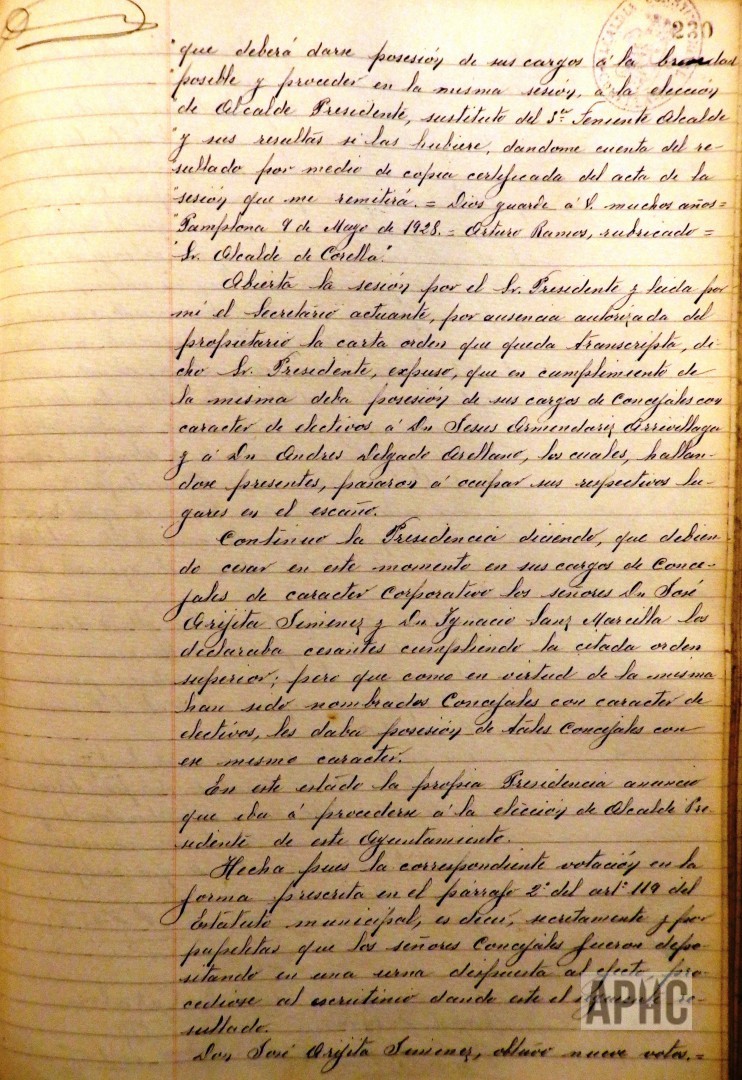 230
"que deberá darse posesión de sus cargos á la
"posible y proceder en la misma sesión, á la elección
"de Alcalde Presidente, sustituto del 3er Teniente Alcalde
"y sus resultas si las hubiere, dandome cuenta del re-
"sultado por medio de copia certificada del acta de la
"sesión que me remitirá. = Dios guarde á V. muchos años =
"Pamplona 9 de Mayo de 1928. = Arturo Ramos, rubricado =
"Sr. Alcalde de Corella."
Abierta la sesión por el Sr. Presidente y leida por
mí el Secretario actuante, por ausencia autorizada del
propietario la carta orden que queda transcripta, di-
cho Sr. Presidente, expuso, que en cumplimiento de
la misma daba posesión de sus cargos de Concejales con
caracter de electivos á Dn Jesus Armendariz Arrivillaga
y á Dn Andres Delgado Arellano, los cuales, hallan-
dose presentes, pasaron á ocupar sus respectivos lu-
gares en el escaño.
Continuo la Presidencia diciendo, que debien-
do cesar en este momento en sus cargos de Conce-
jales de caracter Corporativo los señores Dn José
Arijita Jimenez y Dn Ygnacio Sanz Marcilla los
declaraba cesantes cumpliendo la citada orden
superior; pero que como en virtud de la misma
han sido nombrados Concejales con caracter de
electivos, les daba posesión de tales Concejales con
ese mismo caracter.
En este estado la propia Presidencia anuncio
que iba á procederse á la elección de Alcalde Pre-
sidente de este Ayuntamiento.
Hecha pues la correspondiente votación en la
forma prescrita en el párrafo 2º del artº 119 del
Estatuto municipal, es decir, secretamente y por
papeletas que los señores Concejales fueron depo-
sitando en una urna dispuesta al efecto pro-
cediose al escrutinio dando este el siguiente re-
sultado.
Don José Arijita Jimenez, obtuvo nueve votos. =
APHC